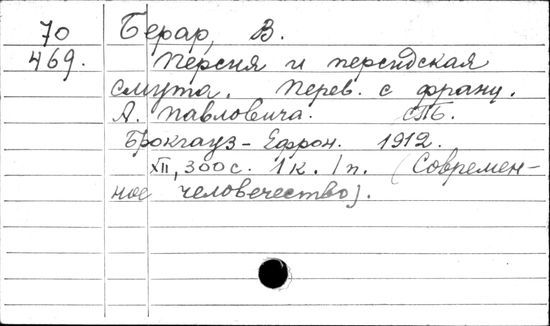 70 Берар, В.
469. Персия и персидская
смута. Перев. с франц.
А. Павловича. СПБ.
Брокгауз-Ефрон. 1912.
XII, 300 с. 1 к. /п. (Современ-
ное человечество).